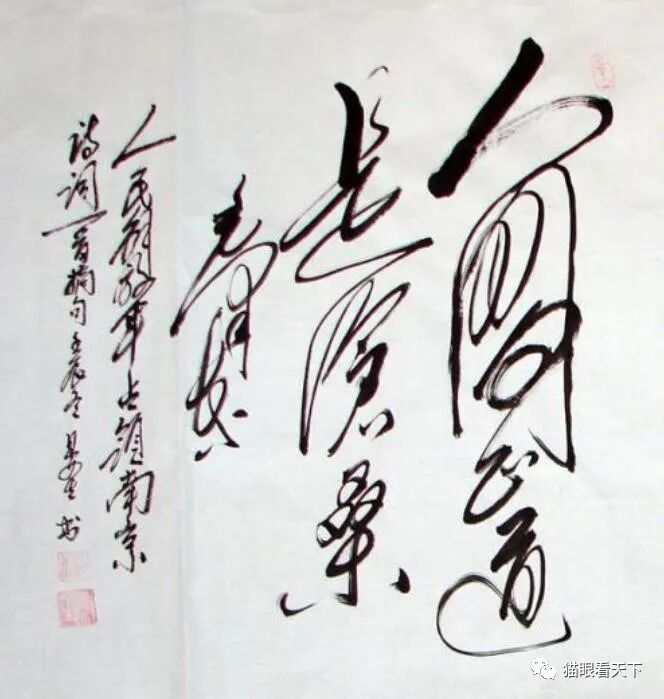 人間正道
是滄桑
毛泽东
人民解放军占领南京
诗词一首摘句 壬辰冬 书
猫眼看天下